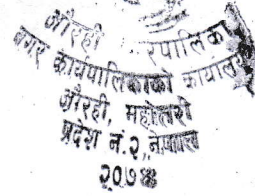 औरही रपालिका
नगर कार्यपालिकाको कार्यालय
औरही, महोत्तरी
प्रदेश नं.२, नेपाल